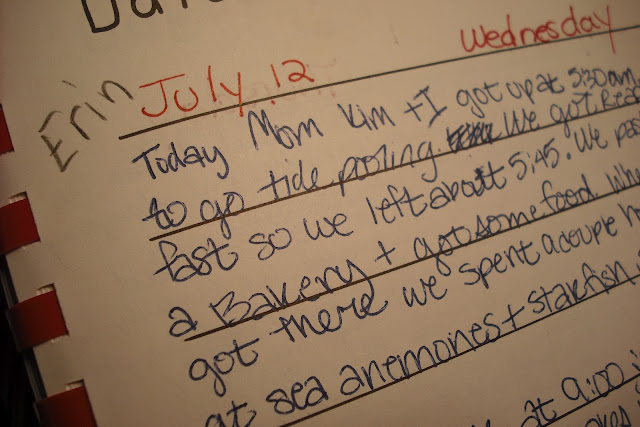 Erin
July 12 Wednesday
Today Mom Kim + I got up at 5:30am
to go tide pooling. We got
fast so we left about 5:45. We
a Bakery + got some food.
got there we spent a couple
at sea anemones + starfish
at 9:00